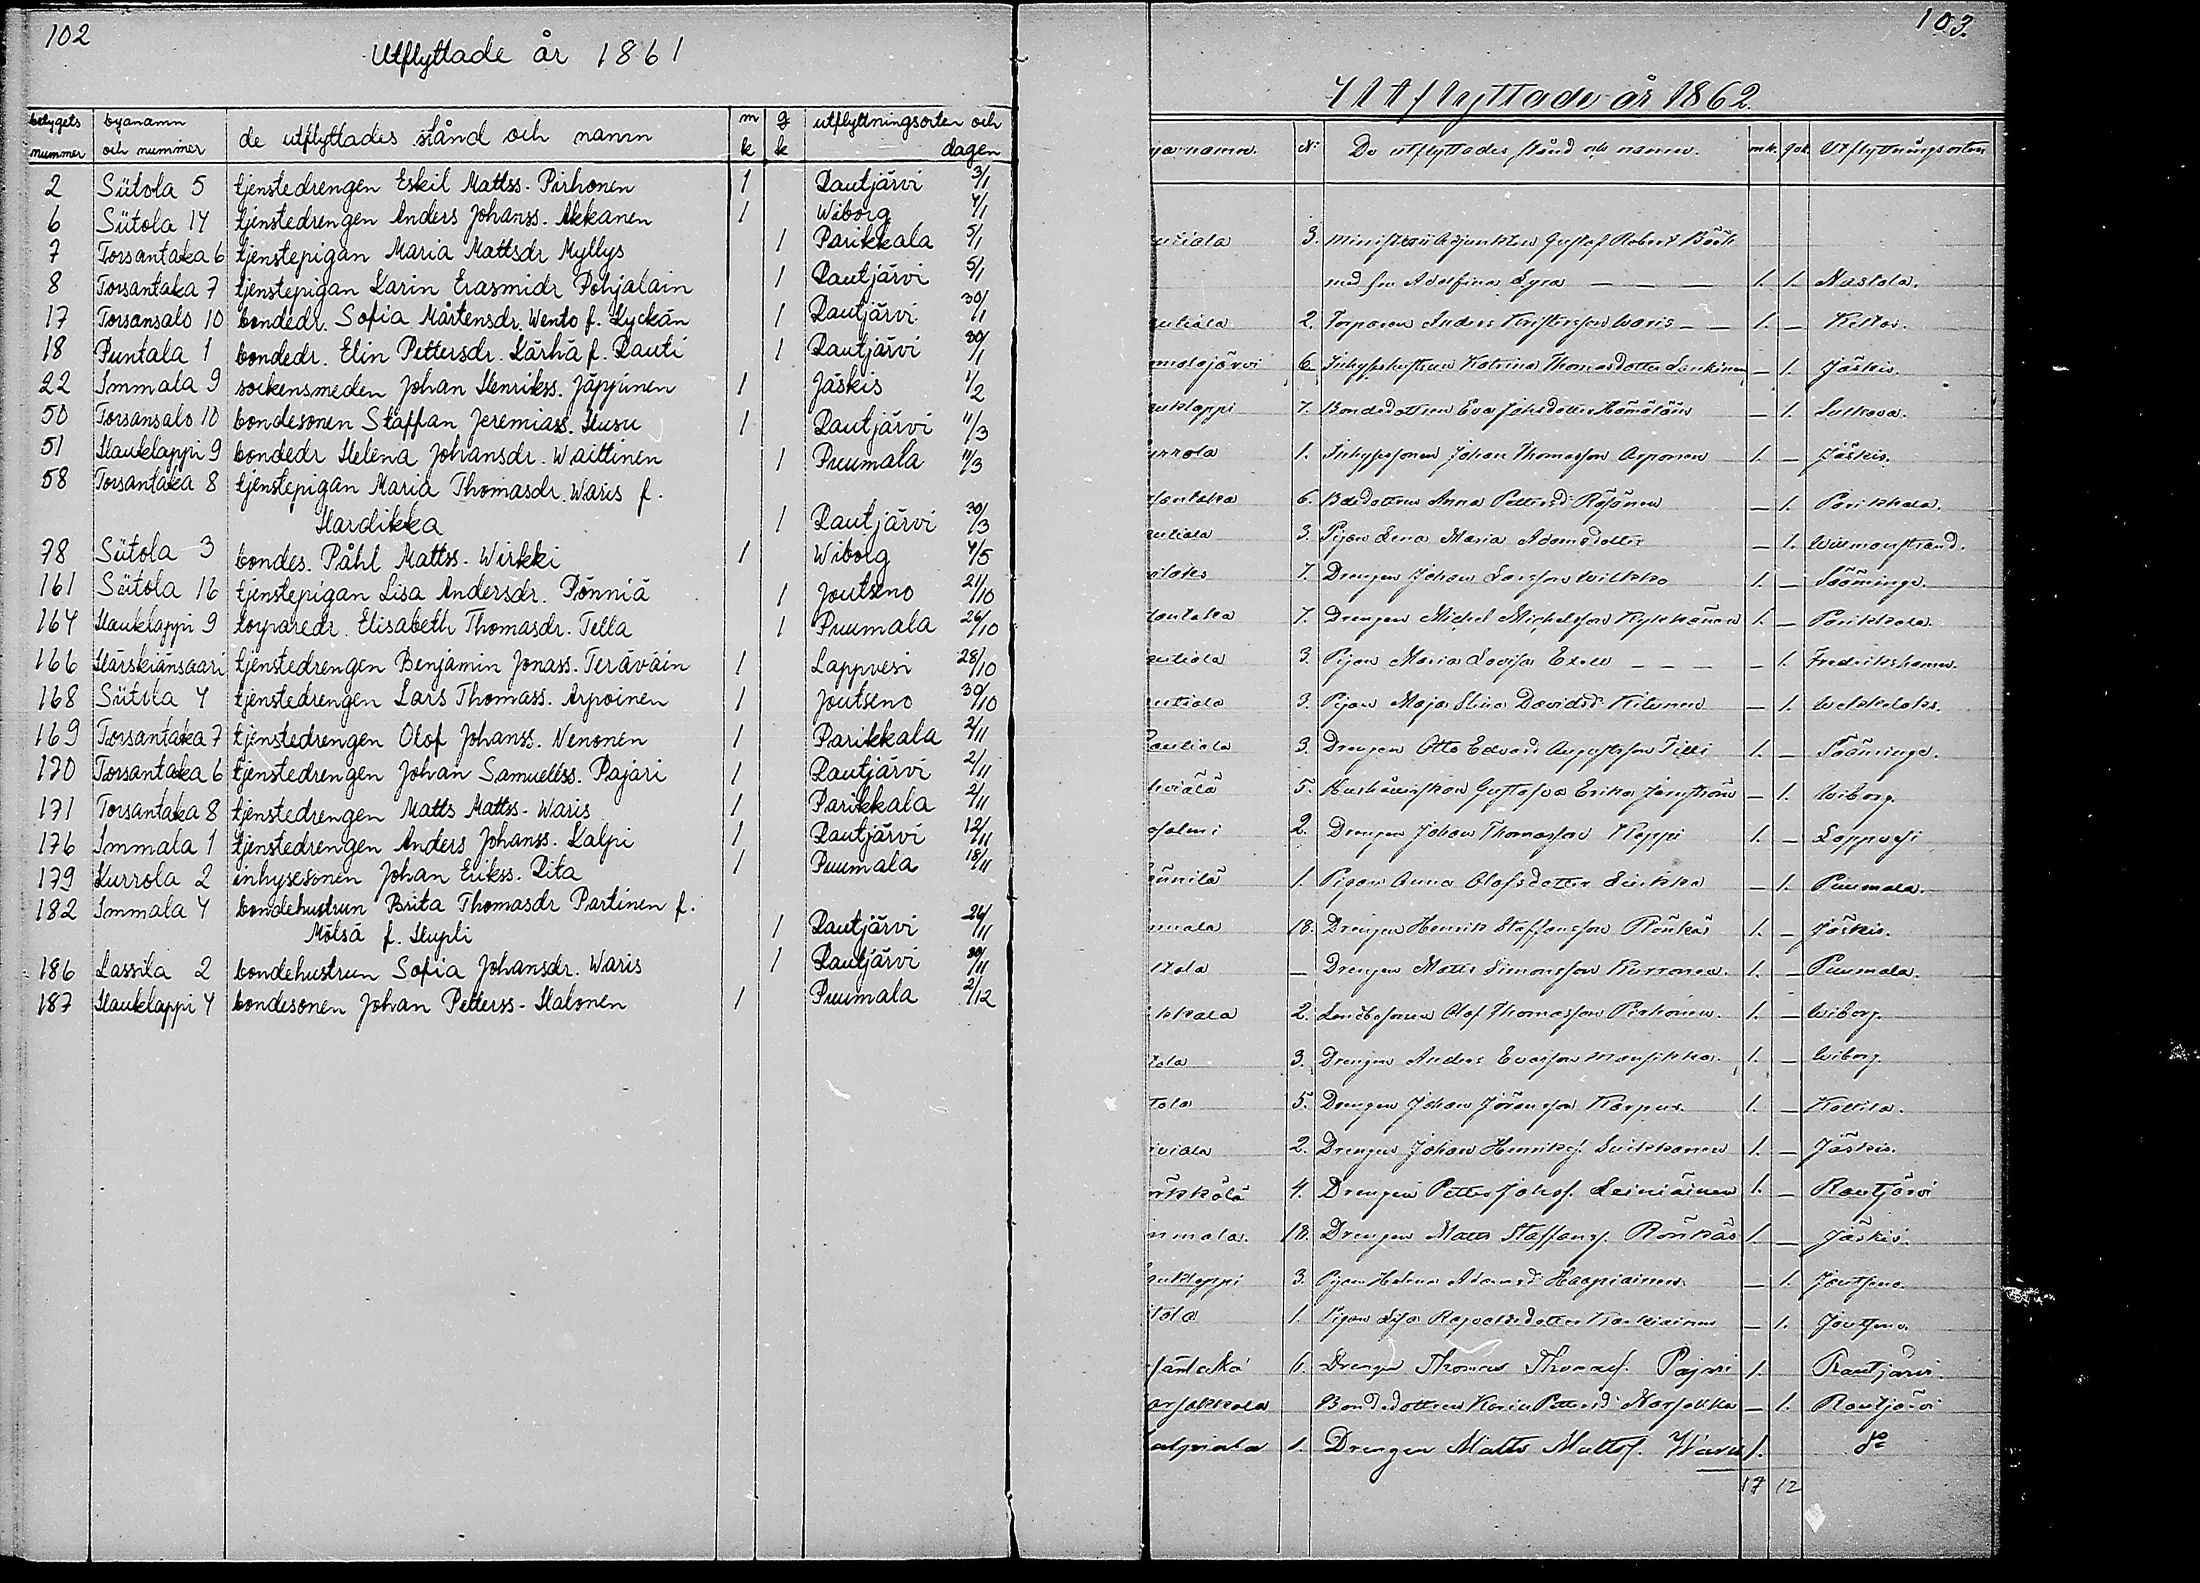 102
Utflyttade år 1861
betygets nummer | byanamn och nummer | de utflyttades stånd och namn | m k | q k | utflyttningsorten och dagen
2 Siitola 5 tjenstedrengen Eskil Mattss. Pirhonen 1 Rautjärvi 3/1
6 Siitola 14 tjenstedrengen Anders Johanss. Akkanen 1 Wiborg 4/1
7 Torsantaka 6 tjenstepigan Maria Mattsdr Myllys 1 Parikkala 5/1
8 Torsantaka 7 tjenstepigan Karin Erasmidr Pohjalain 1 Rautjärvi 5/1
17 Torsansalo 10 bondedr. Sofia Mårtensdr. Wento f. Lyckän 1 Rautjärvi 30/1
18 Puntala 1 bondedr. Elin Pettersdr. Kärhä f. Rauti 1 Rautjärvi 30/1
22 Immala 9 sockensmeden Johan Henrikss. Jäppinen 1 Jäskis 1/2
50 Torsansalo 10 bondesonen Staffan Jeremiass. Husu 1 Rautjärvi 11/3
51 Hauklappi 9 bondedr Helena Johansdr. Waittinen 1 Puumala 11/3
58 Torsantaka 8 tjenstepigan Maria Thomasdr. Waris f.
Hardikka 1 Rautjärvi 30/3
78 Siitola 3 bondes. Påhl Mattss. Wirkki 1 Wiborg 4/5
161 Siitola 16 tjenstepigan Lisa Andersdr. Pönniä 1 Joutseno 21/10
164 Hauklappi 9 torparedr. Elisabeth Thomasdr. Tella 1 Puumala 26/10
166 Härskiänsaari tjenstedrengen Benjamin Jonass. Teräväin 1 Lappvesi 28/10
168 Siitola 4 tjenstedrengen Lars Thomass. Arpoinen 1 Joutseno 30/10
169 Torsantaka 7 tjenstedrengen Olof Johanss. Nenonen 1 Parikkala 2/11
170 Torsantaka 6 tjenstedrengen Johan Samuelss. Pajari 1 Rautjärvi 2/11
171 Torsantaka 8 tjenstedrengen Matts Mattss. Waris 1 Parikkala 2/11
176 Immala 1 tjenstedrengen Anders Johanss. Kalpi 1 Rautjärvi 12/11
179 Kurrola 2 inhysesonen Johan Erikss. Rita 1 Puumala 18/11
182 Immala 4 bondehustrun Brita Thomasdr Partinen f.
Mölsä f. Hupli 1 Rautjärvi 26/11
186 Lassila 2 bondehustrun Sofia Johansdr. Waris 1 Rautjärvi 30/11
187 Hauklappi 4 bondesonen Johan Petterss. Halonen 1 Puumala 2/12
103.
Utflyttade år 1862.
namn. | No | De utflyttades stånd och namn. | mk. | qvk. | Utflyttningsorten
utiala 3. Ministerii Adjunkten Gustaf Robert
med fru Adolfina Lyra — — — 1. 1. Nastola.
utiala 2. Torparen Anders Christersson Waris — — 1. —
malajärvi 6. Inhyseshustrun Katrina Thomasdotter Lankinen — 1. Jäskis.
uklappi 7. Bondedottren Eva Johsdotter Hämäläin — 1. Sulkava.
urrola 1. Inhysesonen Johan Thomasson Arponen 1. — Jäskis.
santaka 6. Bdedottren Anna Pettersd: Räsänen — 1. Parikkala.
utiala 3. Pigan Lena Maria Adamsdotter — 1. Wilmanstrand.
7. Drengen Johan Larsson Wilkko 1. — Sääminge.
santaka 7. Drengen Michel Michelsson Kykkänen 1. — Parikkala.
utiala 3. Pigan Maria Lovisa — — — — 1. Fredrikshamn.
utiala 3. Pigan Maja Stina Davidsd: Kitunen — 1. Wekkelaks.
autiala 3. Drengen Otto Edvard Augustsson Tilli 1. — Sääminge.
5. Hushållerskan Gustafva Erika — 1. Wiborg.
salmi 2. Drengen Johan Thomasson Keppi 1. — Lappvesi
1. Pigan Anna Olofsdotter — 1. Puumala.
mala 18. Drengen Henrik Staffansson Rönkä 1. — Jäskis.
itola — Drengen Matts Simonsson Kurronen. 1. — Puumala.
kkala 2. Olof Thomasson Pirhonen. 1. — Wiborg.
tola 3. Drengen Anders Evasson Mansikka. 1. — Wiborg.
tola 5. Drengen Johan Jöransson Karpus. 1. —
2. Drengen Johan Henriks. Suikkanen 1. — Jäskis.
4. Drengen Petter Johss. Leiniäinen 1. — Rautjärvi
mmala. 18. Drengen Matts Staffanss. Rönkä 1. — Jäskis.
uklappi 3. Pigan Helena Adamsd: Haapiainen — 1. Joutseno.
tola 1. Pigan Lisa — 1. Joutseno.
santaka 6. Drengen Thomas Thomass. Pajari 1. Rautjärvi.
arjakkala Bondedottren Karin Pettersd: Narjakka — 1. Rautjärvi
1. Drengen Matts Mattss. Waris 1. do
17 12